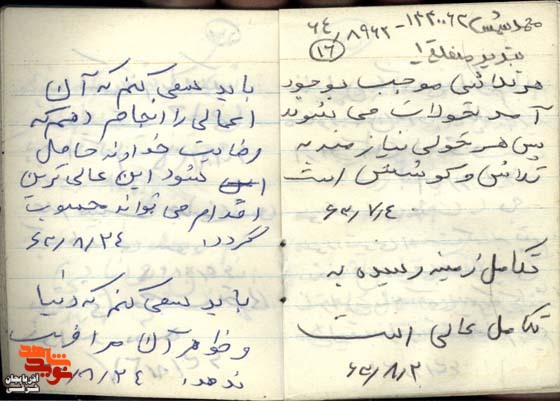 ۶۴/۸۹۶۲-۱۳۴۰۰۶۲
(۱۶)
هر تلاشی موجب بوجود
آمد تحولات می شوند
پس هر تحولی نیازمند به
تلاش و کوشش است
۶۳/۷/۴
تکامل زمینه رسیده به
تکامل عالی است
۶۳/۸/۲
باید سعی کنم که آن
اعمالی را انجام دهم که
رضایت خداوند حاصل
شود این عالی ترین
اقدام می تواند محسوب
گردد.
۶۳/۸/۲۴
باید سعی کنم که دنیا
و ظواهر آن مرا فریب
ندهد.
۸/۲۴
نوید شاهد
آذربایجان شرقی